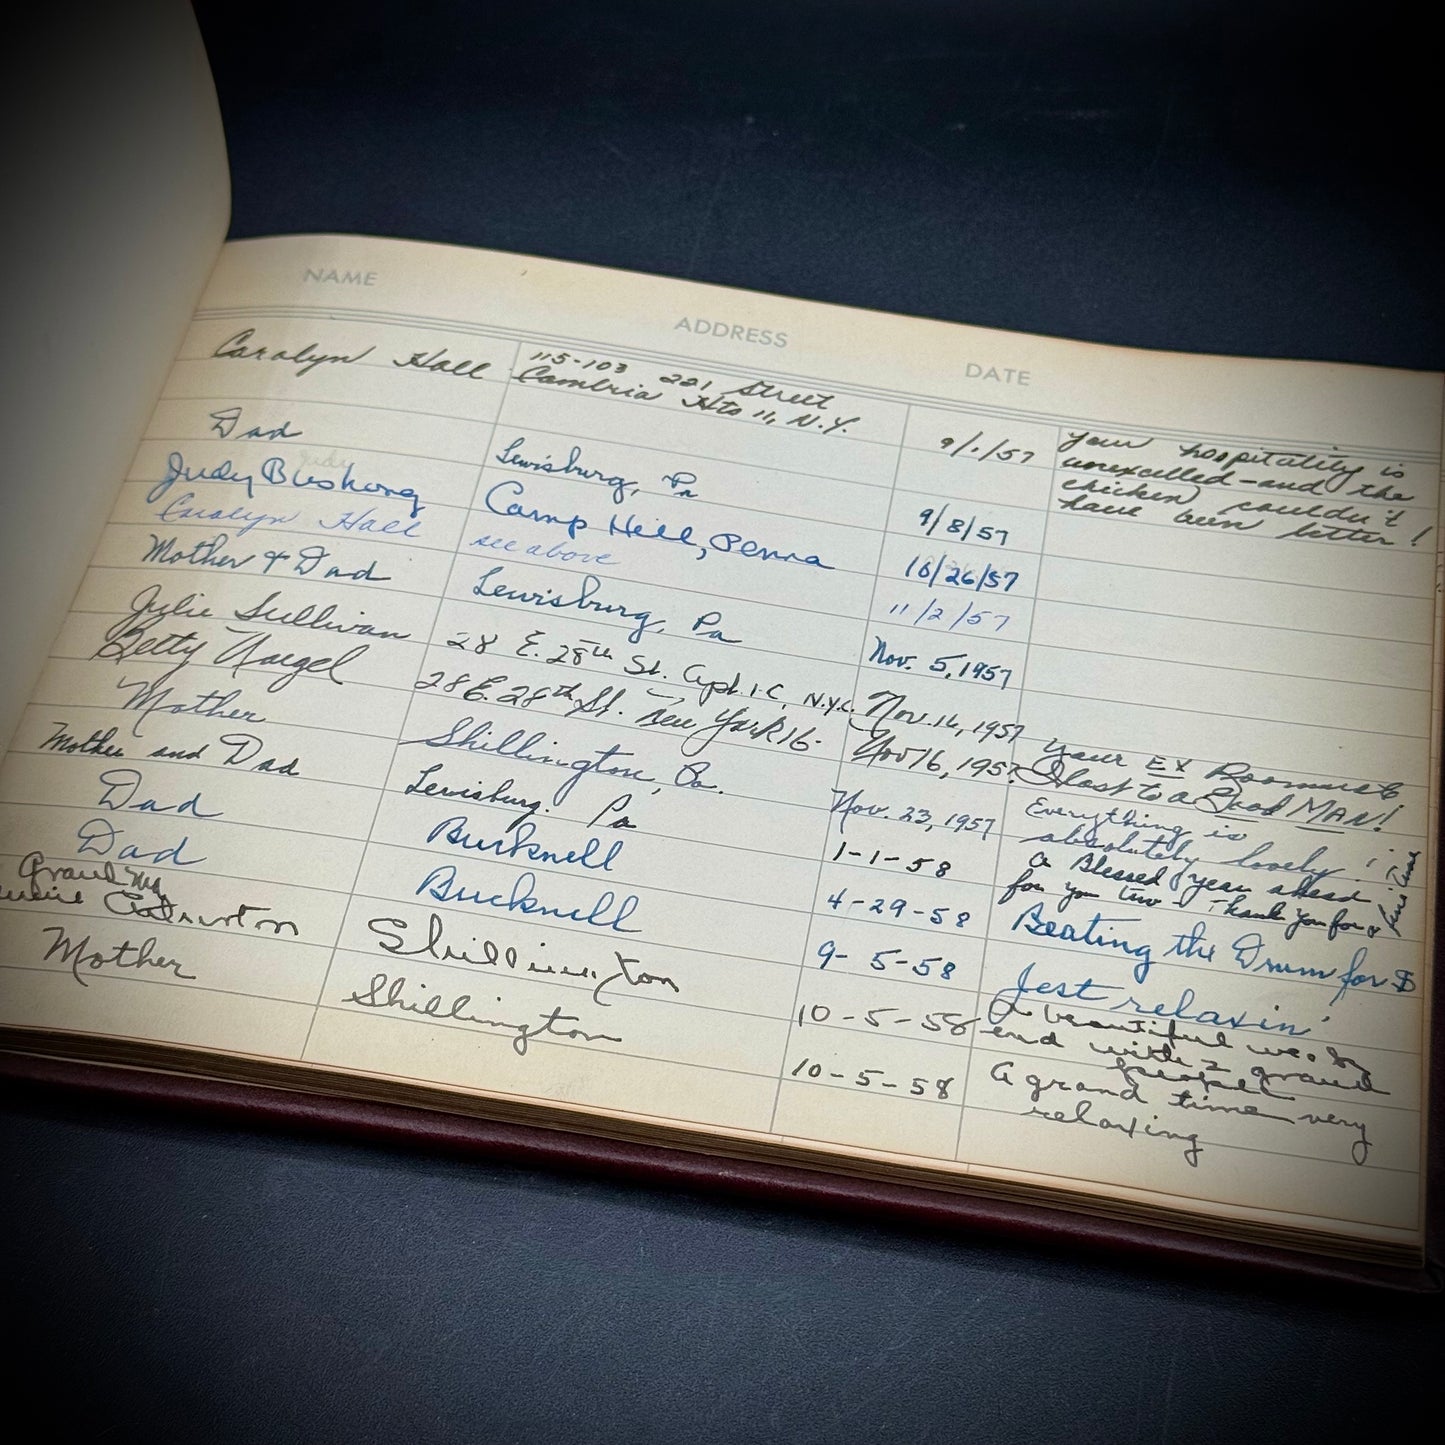 NAME ADDRESS DATE
Carolyn Hall 115-103 221 Street
Cambria Hts 11, N.Y. 9/1/57 your hospitality is
unexcelled - and the
chicken couldn't
have been better!
Dad Lewisburg, Pa 9/8/57
Judy Camp Hill, Penna 10/26/57
Carolyn Hall see above 11/2/57
Mother & Dad Lewisburg, Pa Nov. 5, 1957
Julie Sullivan 28 E. 28th St. Apt. 1-C, N.Y.C. Nov. 16, 1957 Your EX Roommate
Betty 28 E. 28th St. New York 16. Nov 16, 1957 to a Good MAN!
Mother Shillington, Pa. Nov. 23, 1957 Everything is
absolutely lovely!
Mother and Dad Lewisburg. Pa 1-1-58 a Blessed year ahead
for you two - Thank you for
Dad Bucknell 4-29-58 Beating the Drum for $
Dad Bucknell 9-5-58 Jest relaxin'
Grand Ma
Shillington 10-5-58 A beautiful week
end with 2 grand
people
Mother Shillington 10-5-58 A grand time very
relaxing